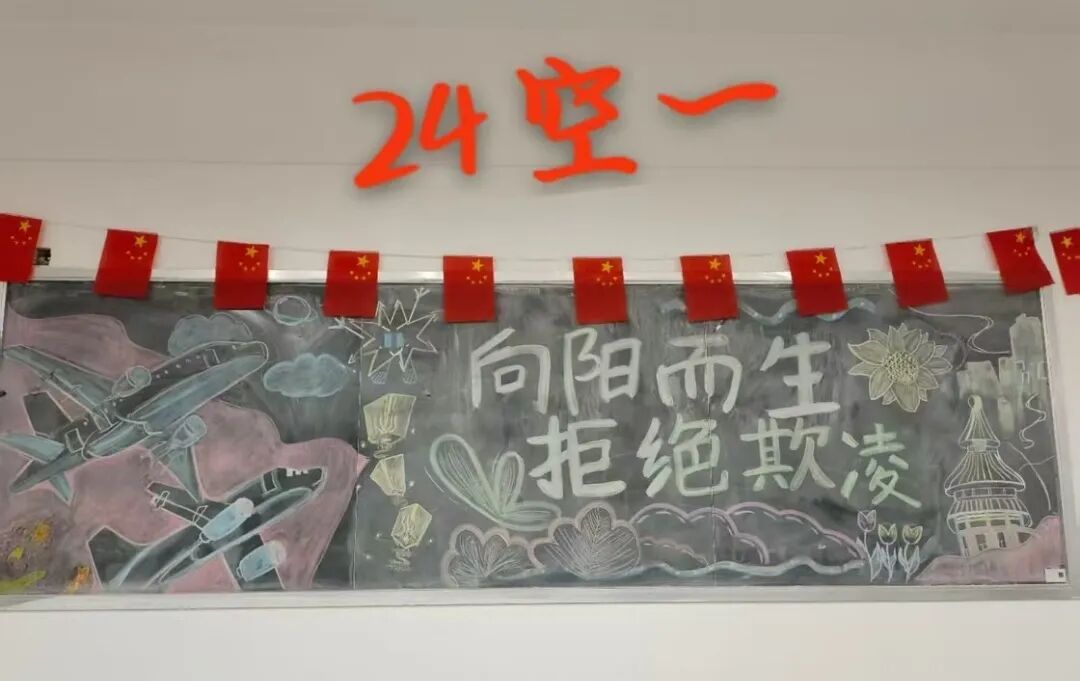 24空一
向阳而生
拒绝欺凌